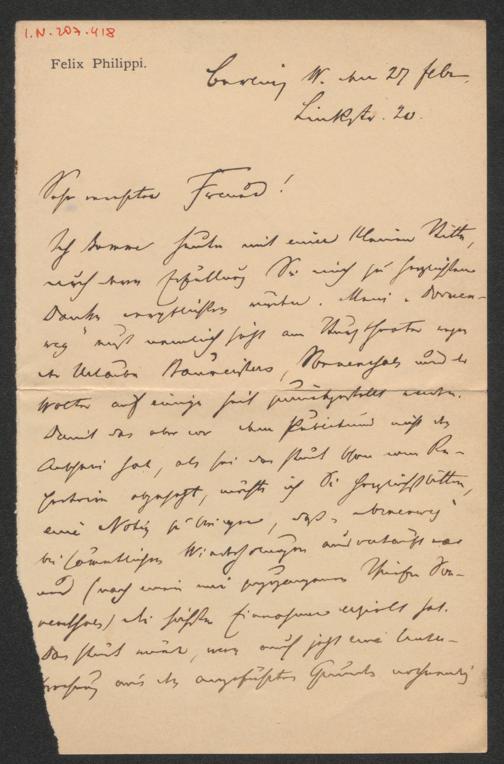 I.N. 207.418
Felix Philippi.
Berlin W. den 27 Febr.
Linkstr. 20.
Sehr verehrter Freund!
Ich komme heute mit einer kleinen Bitte,
durch deren Erfüllung Sie mich zu herzlichstem
Danke verpflichten würden. Mein „Dornen-
weg“ muß nämlich jetzt am Burgtheater wegen
der Urlaube Baumeisters, Sonnenthals und der
Wolter auf einige Zeit zurückgestellt werden.
Damit das aber vor dem Publikum nicht den
Anschein hat, als sei das Stück schon vom Re-
pertoire abgesetzt, möchte ich Sie herzlichst bitten,
eine Notiz zu bringen, daß „Dornenweg“
bei sämmtlichen Wiederholungen ausverkauft war
und (nach einem mir zugegangenen Briefe Son-
nenthals) die höchsten Einnahmen erzielt hat.
Das Stück würde, wenn auch jetzt eine Unter-
brechung aus den angeführten Gründen nothwendig